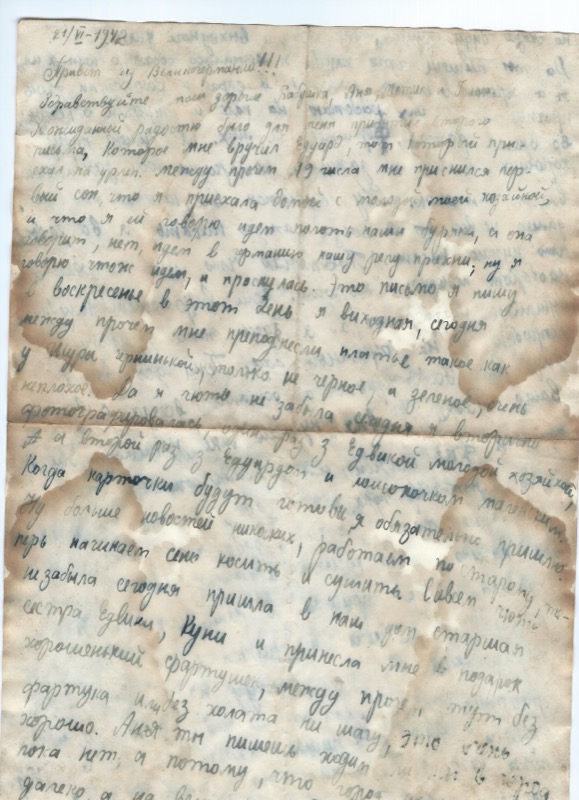 21/VI-1942
Привет из Великогермании!!!
Здравствуйте мои дорогие Бабушка, Аня,
Неожиданной радостю было для меня
письма, которое мне вручил Едуард, тот который при-
между прочем 19 числа мне приснился пер-
вий сон, что я приехала домой с молодой моей хозяйкой,
и что я ей говорю идем полоть наши буряки, а она
говорит, нет, идем в фманию нашу
говорю чтож идем, и проснулась. Это письмо я пишу
в воскресенье в этот день я виходная, сегодня
между прочем мне преподнесли платье такое как
у Шуры черненькой, только не черное, а зеленое, очень
неплохое. Да я чють не забыла сегодня я вторично
фотографировалась, один раз з Едвикой молодой хозяйкой,
А а второй раз з Едуардом и
Когда карточки будут готовы я обязательно пришлю.
Ну больше новостей никаких, работаем по старому, те-
перь начинаем сено косить и сушить Совсем чють
не забыла сегодня пришла в наш дом старшая
сестра Едвики, Куни и принесла мне в подарок
хорошенький фартушок, между прочем тут без
фартука или без холата ни шагу, это очень
хорошо. Аня ты пишешь ходил ли я в город
пока нет, а потому, что город
далеко, а на